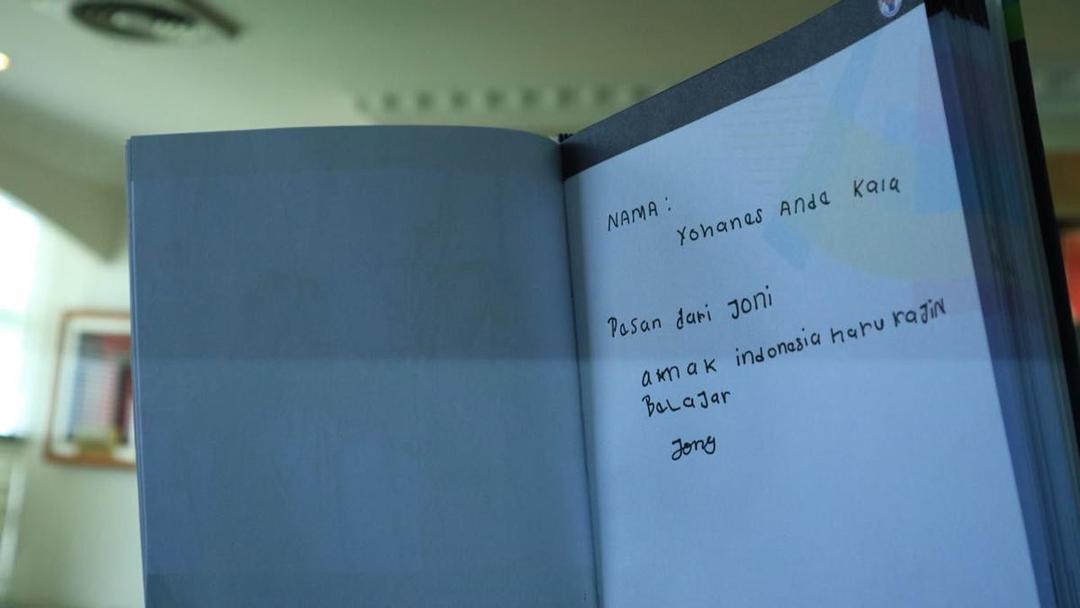 NAMA :
Yohanes Ande Kala
Pesan dari JONi
anak indonesia haru rajin
BeLaJar
Jony